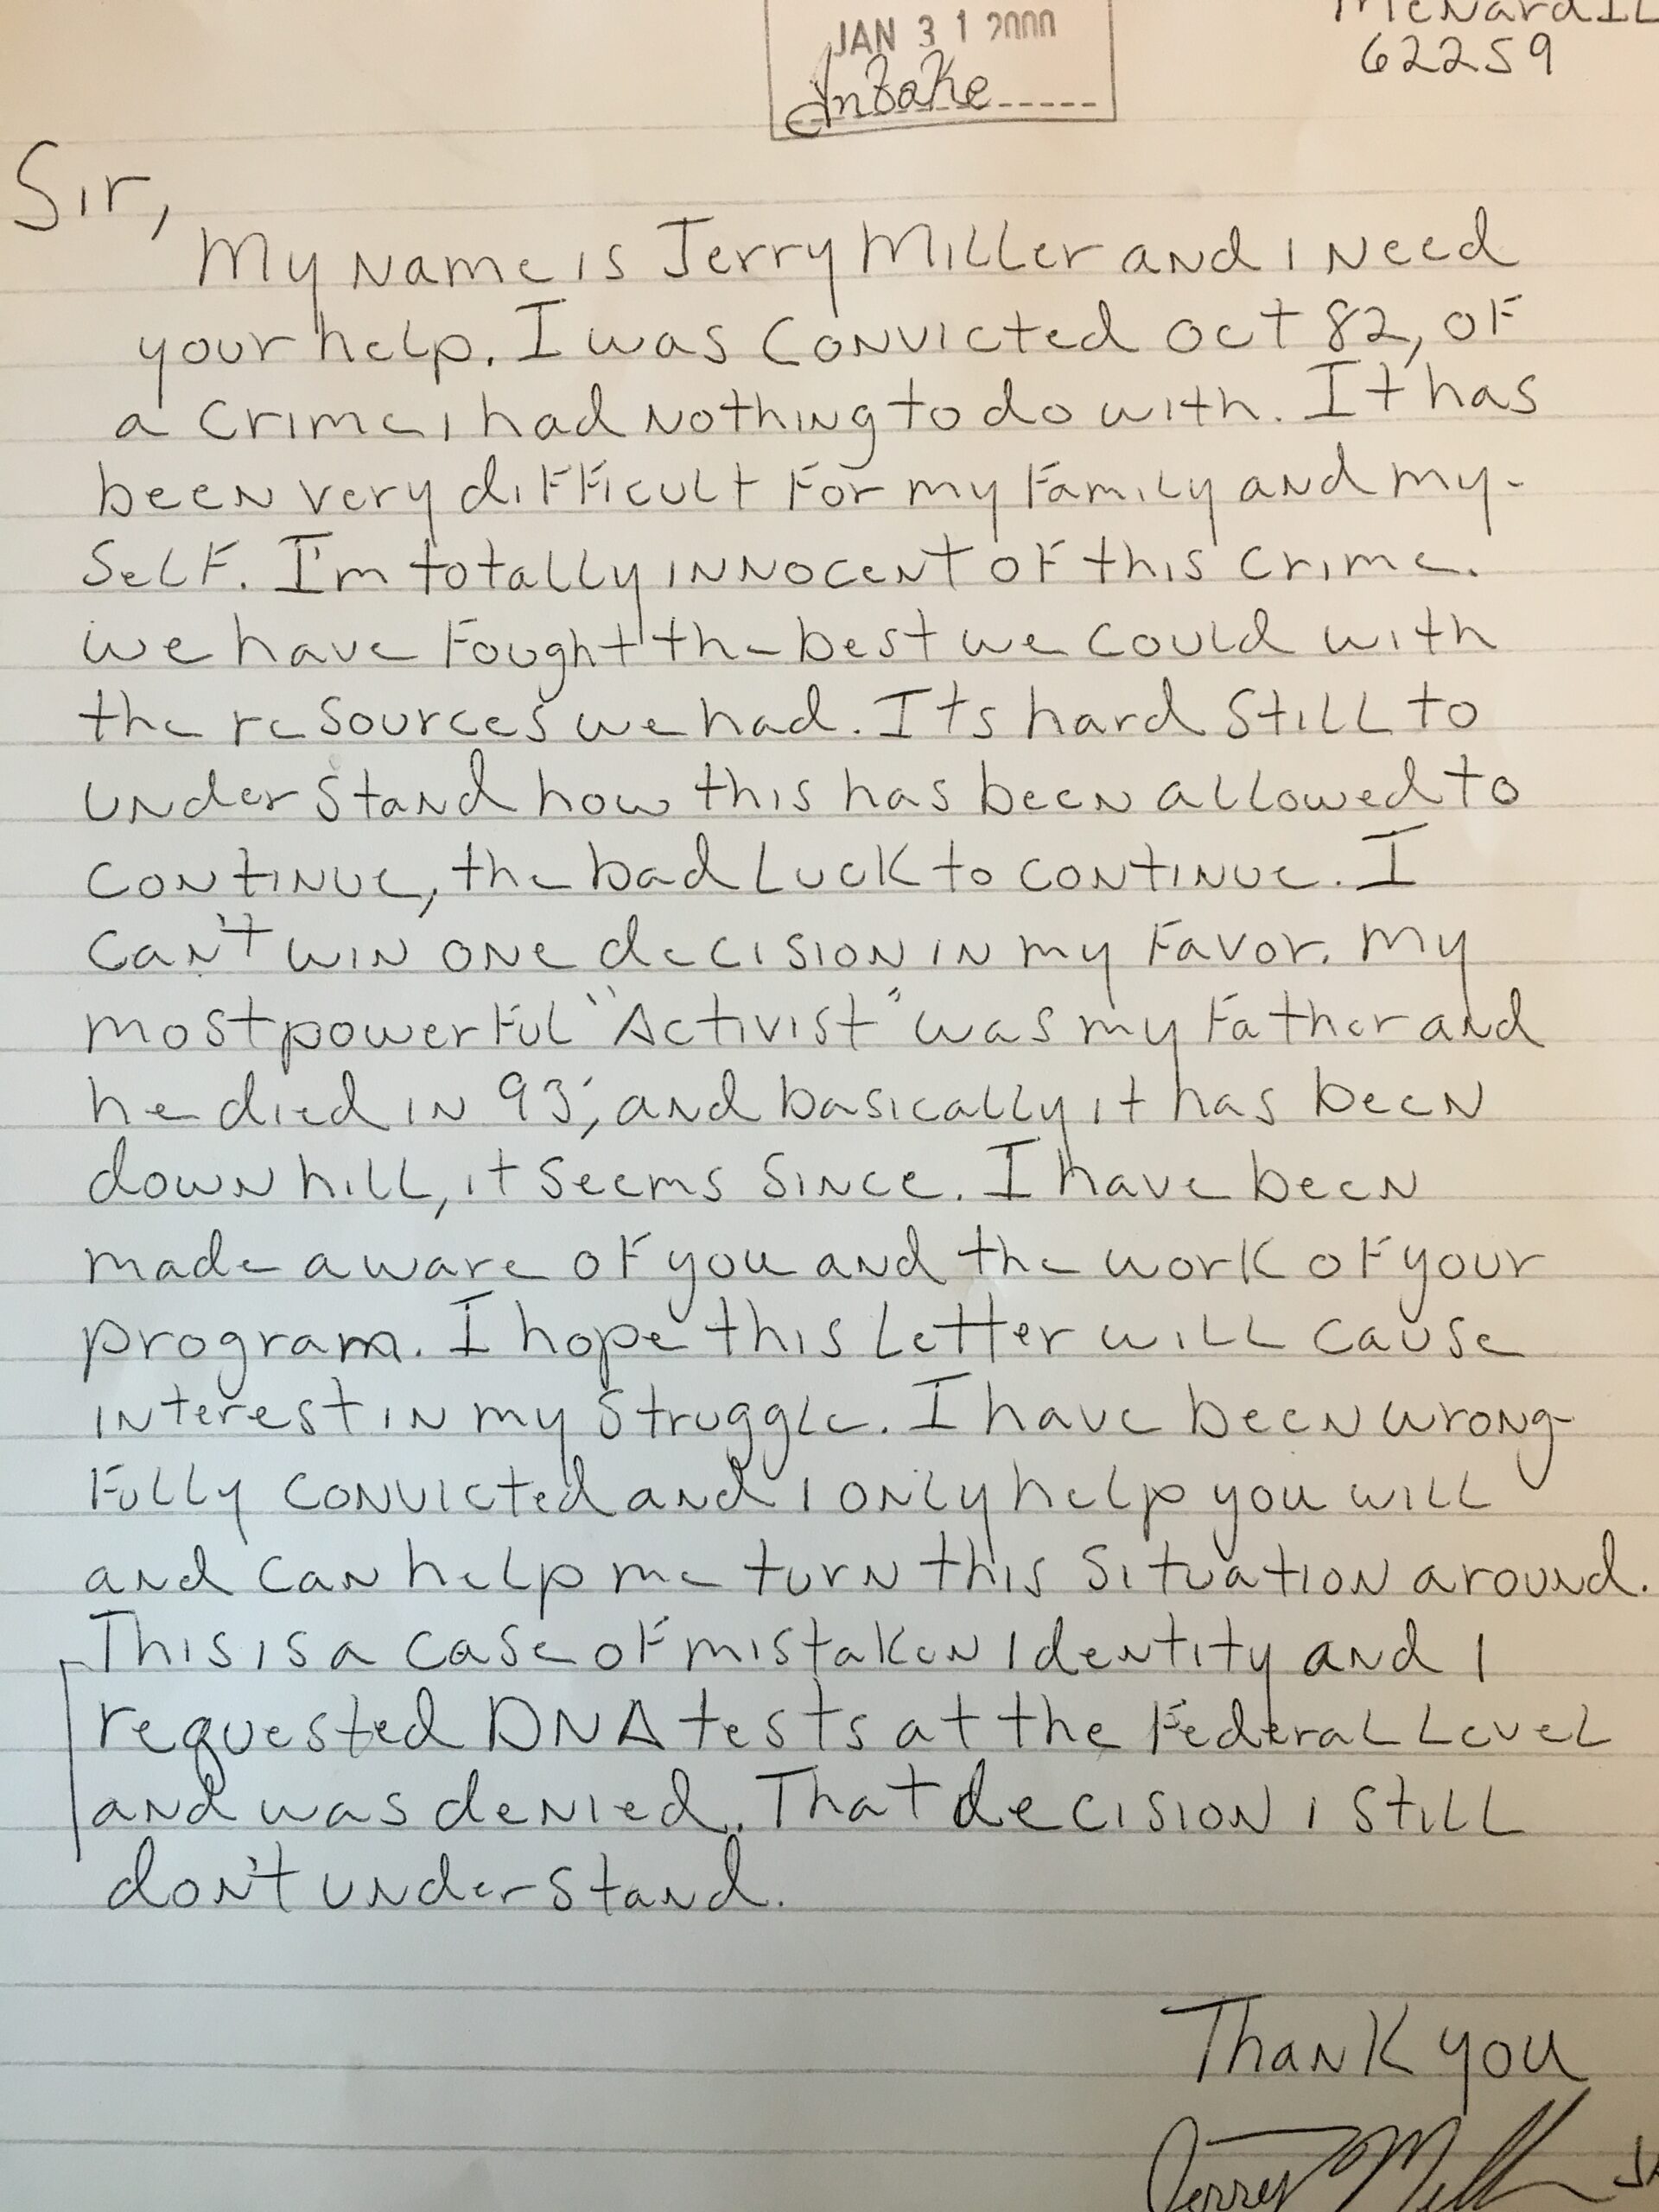 JAN 31 2000
Menard IL
62259
Intake
Sir,
My Name is Jerry Miller and I Need
your help. I was convicted Oct 82, of
a crime I had Nothing to do with. It has
been very difficult for my family and my-
self. I'm totally innocent of this crime.
we have fought the best we could with
the resources we had. Its hard still to
understand how this has been allowed to
continue, the bad luck to continue. I
can't win one decision in my favor. My
most powerful "Activist" was my father and
he died in 93', and basically it has been
down hill, it seems since. I have been
made aware of you and the work of your
program. I hope this letter will cause
interest in my struggle. I have been wrong-
fully convicted and I only help you will
and can help me turn this situation around.
This is a case of mistaken identity and I
requested DNA tests at the Federal Level
and was denied. That decision I still
don't understand.
Thank you
Jerry Miller